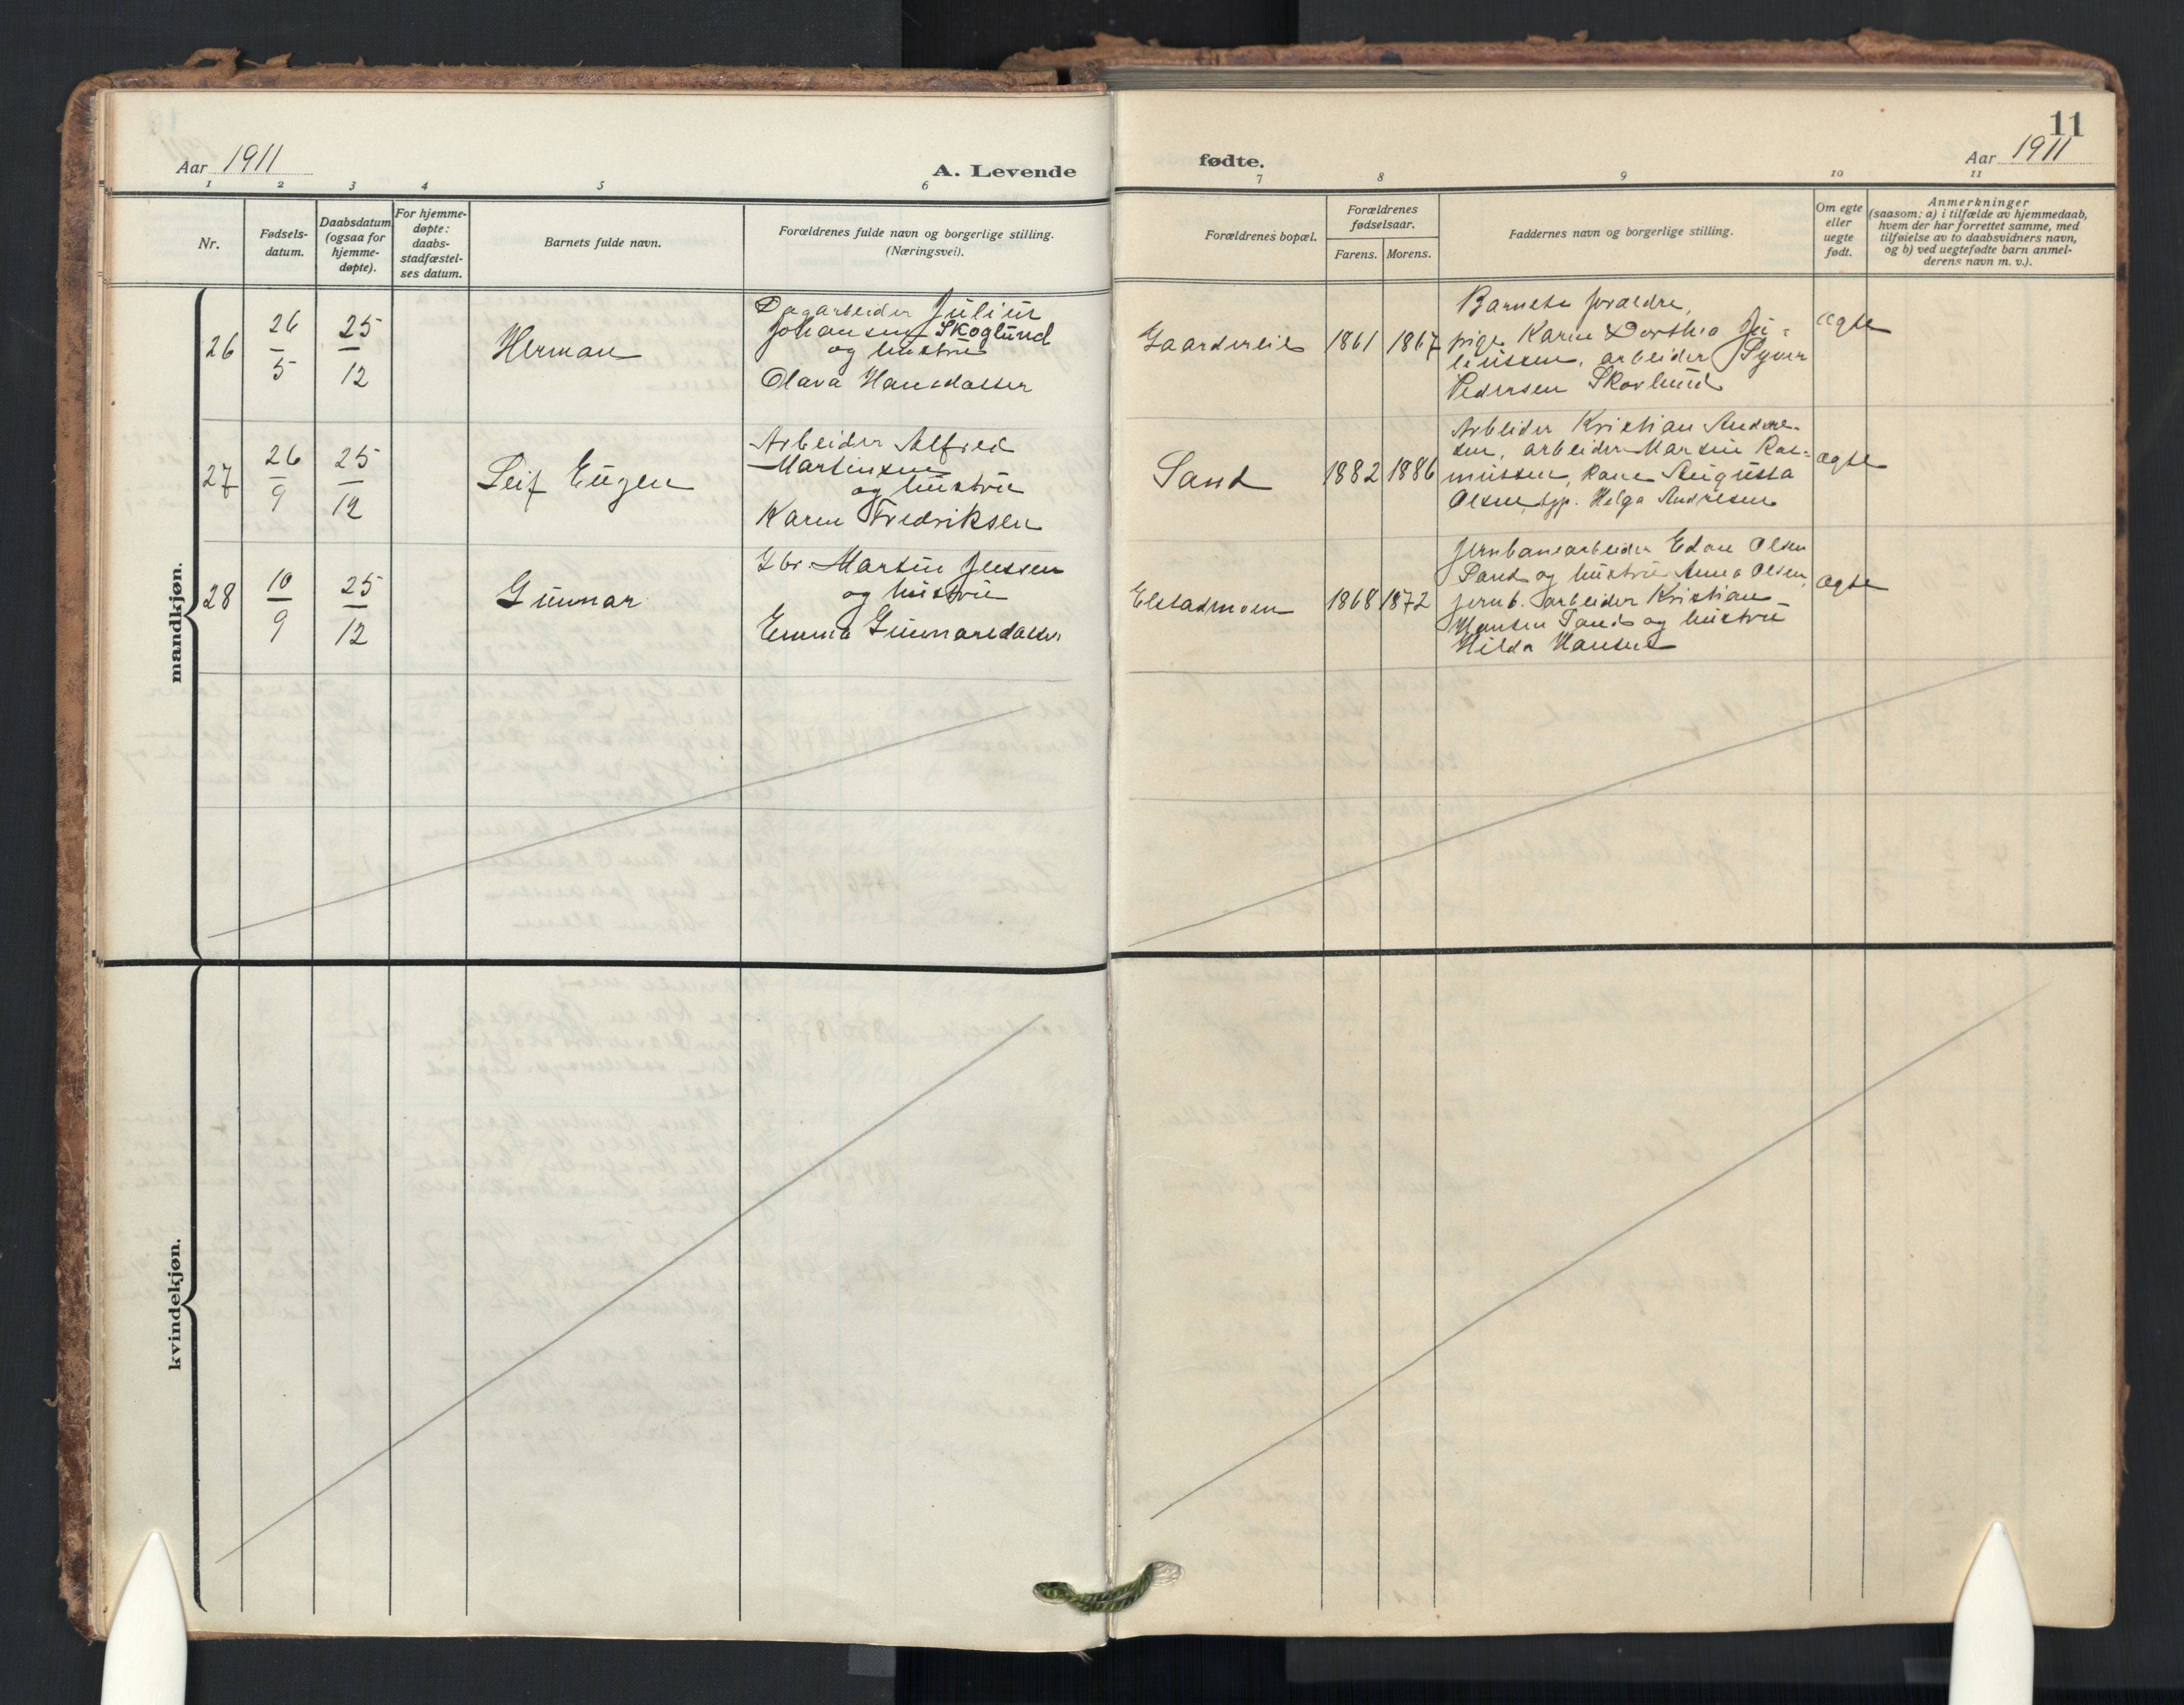 11
Aar 1911
A. Levende
fødte.
Aar 1911
1 2 3 4 5 6 7 8 9 10 11
Nr.
Fødsels-
datum.
Daabsdatum
(ogsaa for
hjemme-
døpte).
For hjemme-
døpte:
daabs-
stadfæstel-
ses datum.
Barnets fulde navn.
Forældrenes fulde navn og borgerlige stilling.
(Næringsvei).
Forældrenes bopæl.
Forældrenes
fødselsaar.
Farens. Morens.
Faddernes navn og borgerlige stilling.
Om egte
eller
uegte
født.
Anmerkninger
(saasom: a) i tilfælde av hjemmedaab,
hvem der har forrettet samme, med
tilføielse av to daabsvidners navn,
og b) ved uegtefødte barn anmel-
derens navn m. v.).
mandkjøn.
26
26
5
25
12
Herman
Dagarbeider Julius
Johansen Skoglund
og hustru
Olava Hansdatter
Gaardereie
1861
1867
Barnets forældre,
pige Karen Dorthea Ju-
liussen, arbeider Syver
Pedersen Skovlund
ægte
27
26
9
25
12
Leif Eugen
Arbeider Alfred
Martinsen
og hustru
Karen Fredriksen
Sand
1882
1886
Arbeider Kristian Andre-
sen, arbeider Martin Ras-
mussen, kone Augusta
Olsen, Helga Andresen
ægte
28
10
9
25
12
Gunnar
Gbr. Martin Jensen
og hustru
Emma Gunnarsdatter
Elstadmoen
1868
1872
Jernbanearbeider Edon Olsen
Sand og hustru Anna Olsen,
jernb. arbeider Kristian
Hansen Sand og hustru
Hilda Hansen
ægte
kvindekjøn.